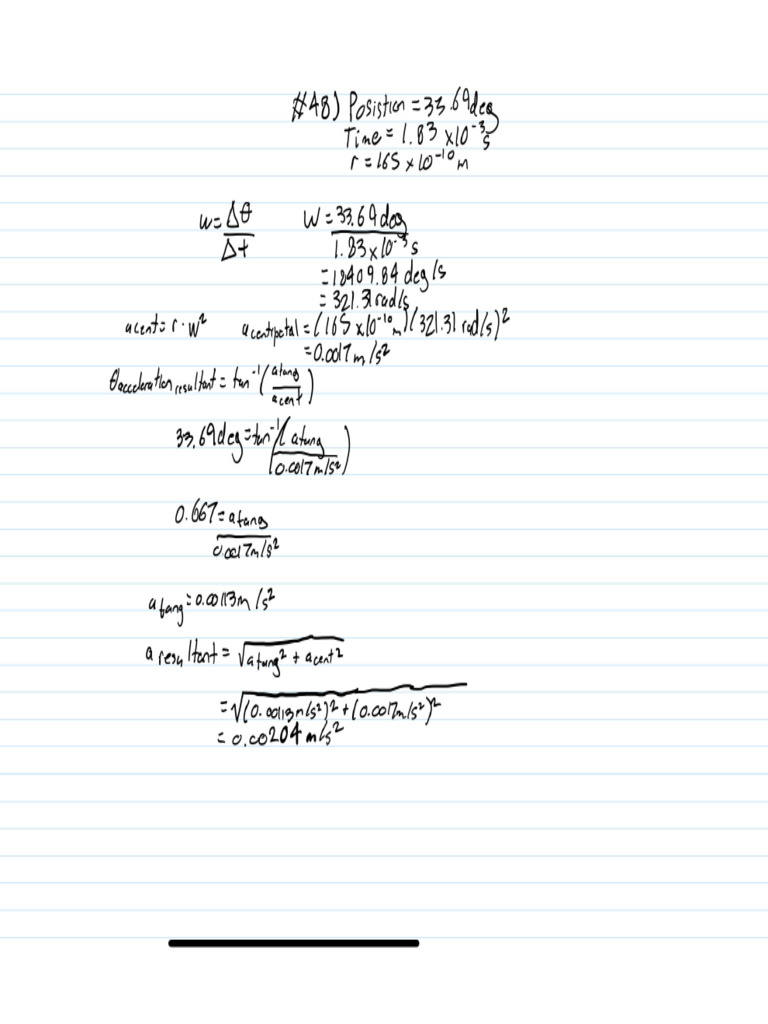 #48) Posistion = 33.69deg
Time = 1.83 x10^-3 s
r = 165 x 10^-10 m
w = Δθ/Δt
W = 33.69 deg/1.83 x 10^-3 s
= 18409.84 deg/s
= 321.31 rad/s
acent = r · w^2
acentipetal = (165 x10^-10 m)(321.31 rad/s)^2
= 0.0017 m/s^2
θacceleration resultant = tan^-1(atang/acent)
33.69deg = tan^-1(atang/0.0017m/s^2)
0.667 = atang/0.0017m/s^2
atang = 0.00113m/s^2
aresultant = √atang^2 + acent^2
= √(0.00113m/s^2)^2 + (0.0017m/s^2)^2
= 0.00204 m/s^2